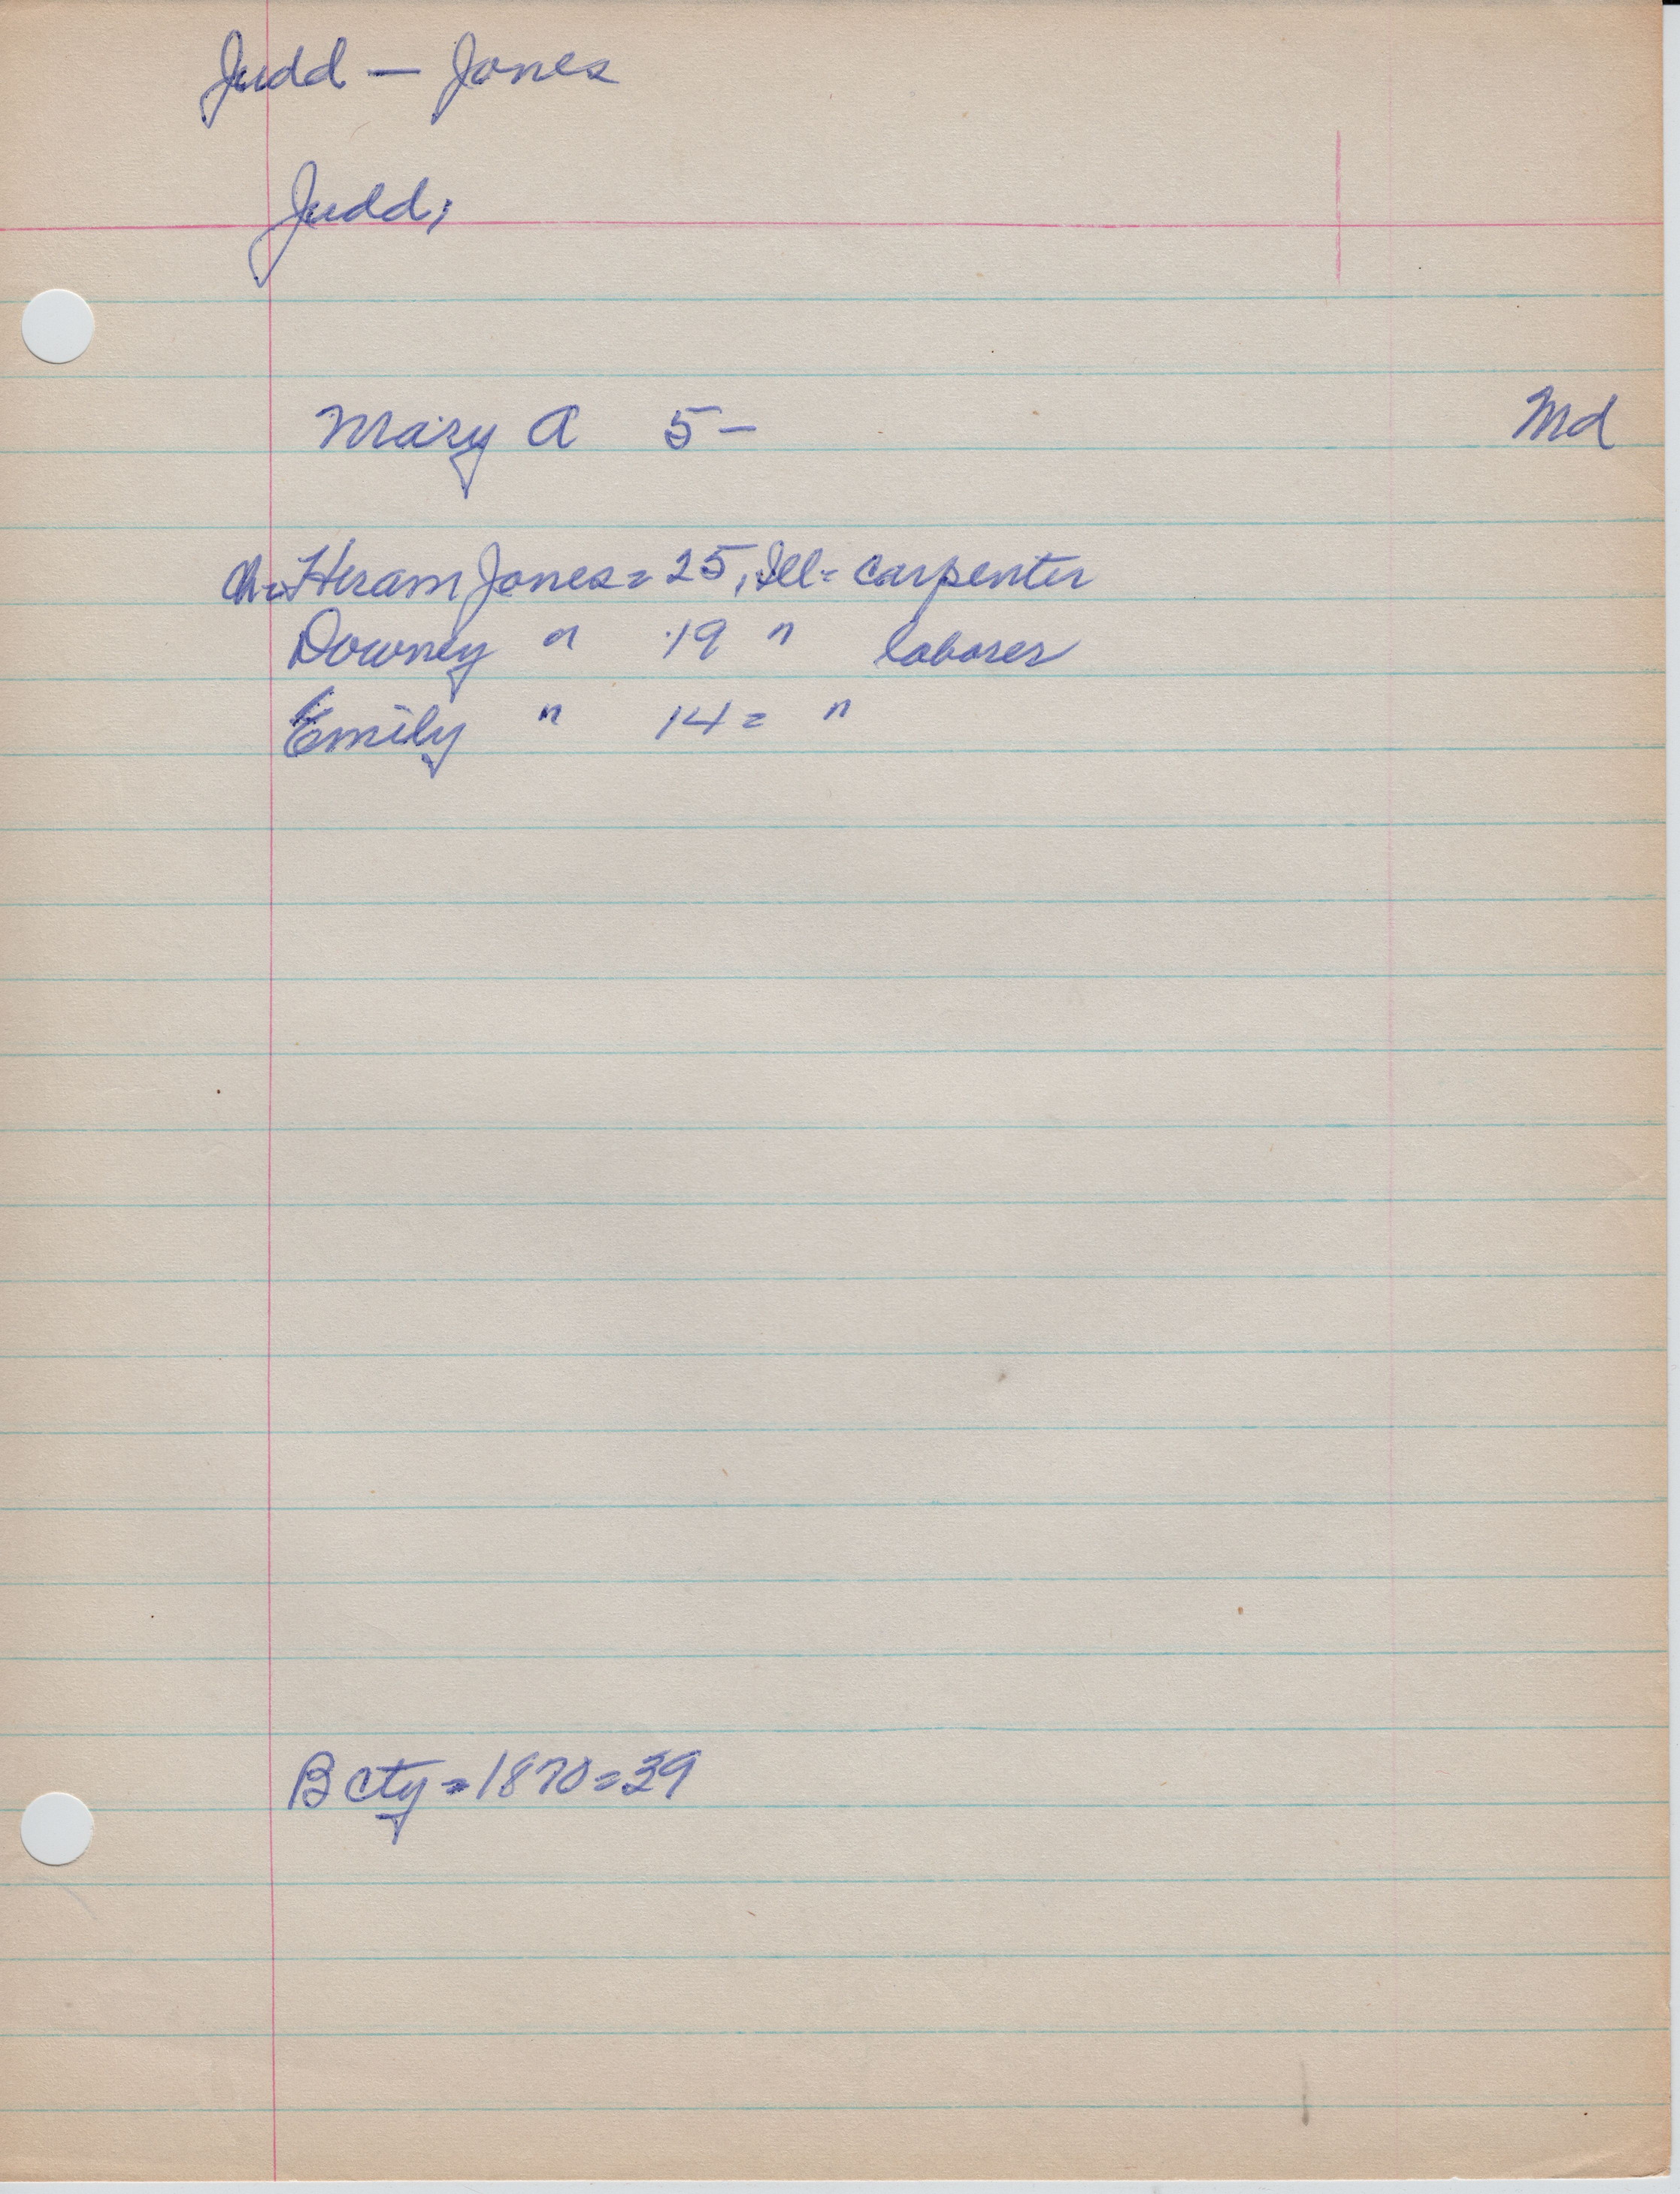 Judd — Jones
Judd,
Mary A 5- Md
ch= Hiram Jones = 25, Ill = carpenter
Downey " 19 " laborer
Emily " 14 = "
B cty = 1870 = 39